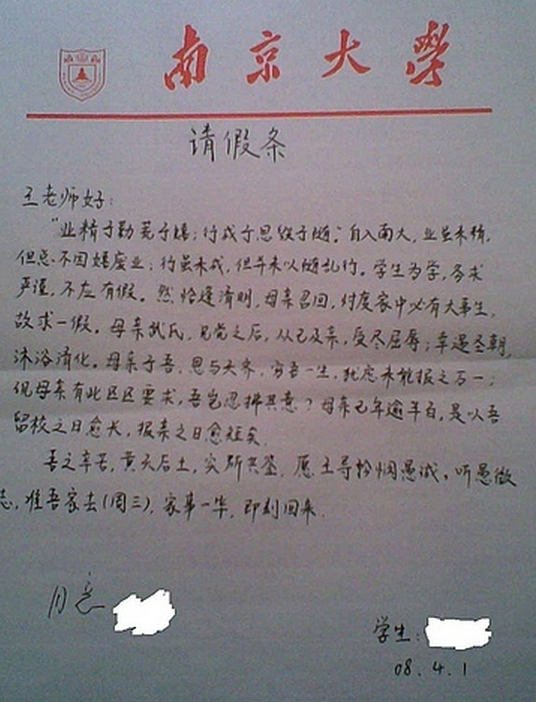 南京大學
请假条
王老师好：
“业精于勤荒于嬉；行成于思毁于随。”自入南大，业虽未精，
但总不因嬉废业；行虽未成，但并未以随乱行。学生为学，务求
严谨，不应有假。然恰逢清明，母亲召回，忖度家中必有大事生，
故求一假。母亲武氏，见党之后，从己及亲，受尽屈辱；幸遇圣朝，
沐浴清化。母亲于吾，恩与天齐，穷吾一生，犹恐未能报之万一；
况母亲有此区区要求，吾岂忍拂其意？母亲已年逾半百，是以吾
留校之日愈长，报亲之日愈短矣。
吾之辛苦，黄天后土，实所共鉴，愿王导矜悯愚诚，听愚微
志，准吾家去（周三），家事一毕，即刻回来。
同意
学生：
08.4.1